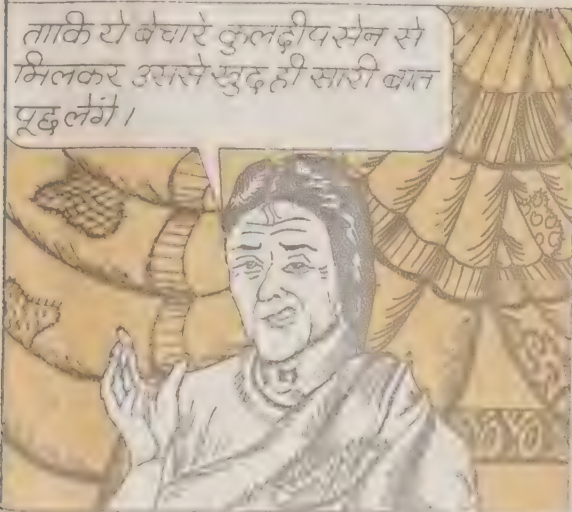 ताकि ये बेचारे कुलदीप सेन से
मिलकर उससे खुद ही सारी बात
पूछ लेंगे।